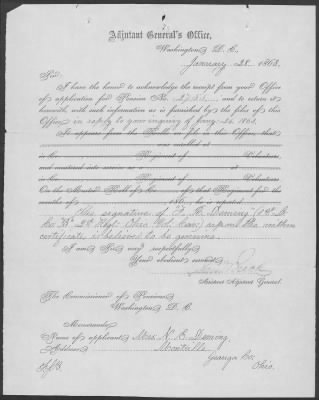 Adjutant General's Office,
Washington, D. C.
January 28. 1863.
Sir:
I have the honor to acknowledge the receipt from your Office
of application for Pension No. and to return it
herewith, with such information as is furnished by the files of this
Office, in reply to your inquiry of Jany. 26. 1863.
It appears from the Rolls on file in this Office, that
was enrolled at
in Co. Regiment of Volunteers,
and mustered into service as a
in Co. Regiment of Volunteers
On the Muster Roll of Co. of that Regiment for the
months of , 186 , he is reported
The signature of
Co. "B" 2d Regt. Ohio Vol. Cav.) upon the within
certificate is believed to be genuine.
I am Sir, very respectfully,
Your obedient servant,
Assistant Adjutant General.
The Commissioner of Pensions,
Washington, D. C.
Memoranda:
Name of applicant, Mrs. N. E. Deming
Address, Montville
Geauga Co.
Ohio.